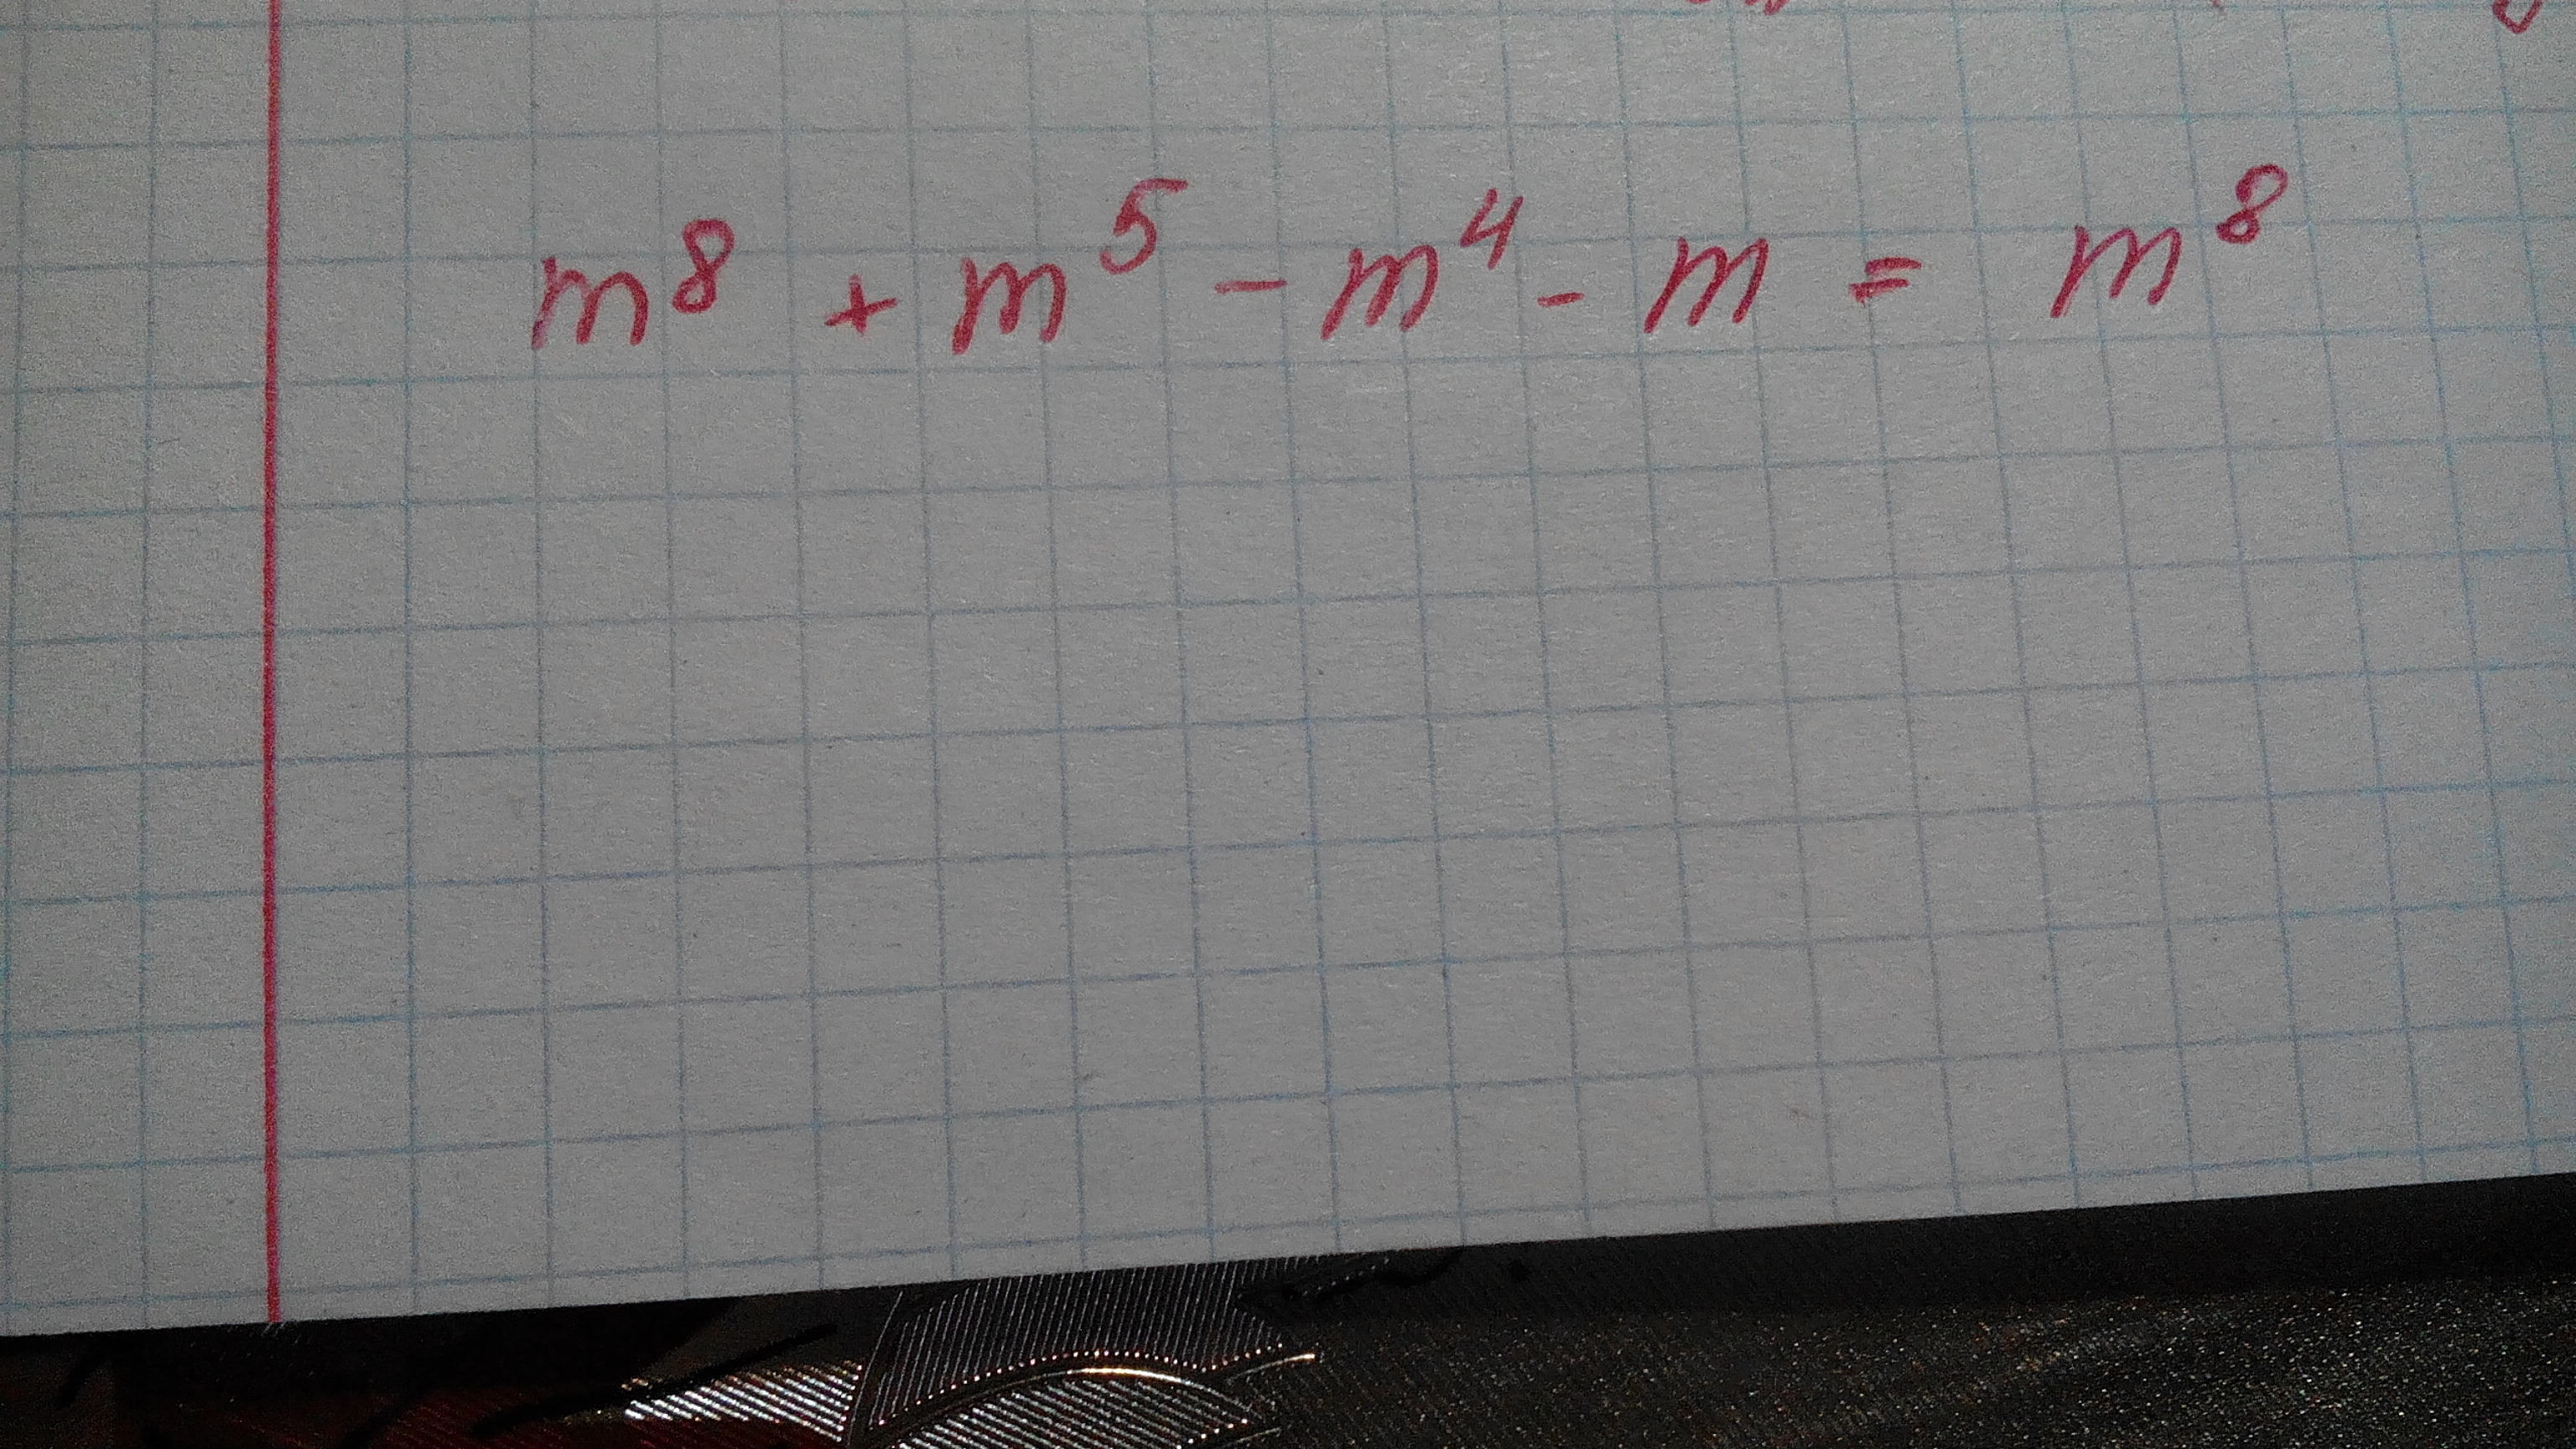 m⁸ + m⁵ - m⁴ - m = m⁸